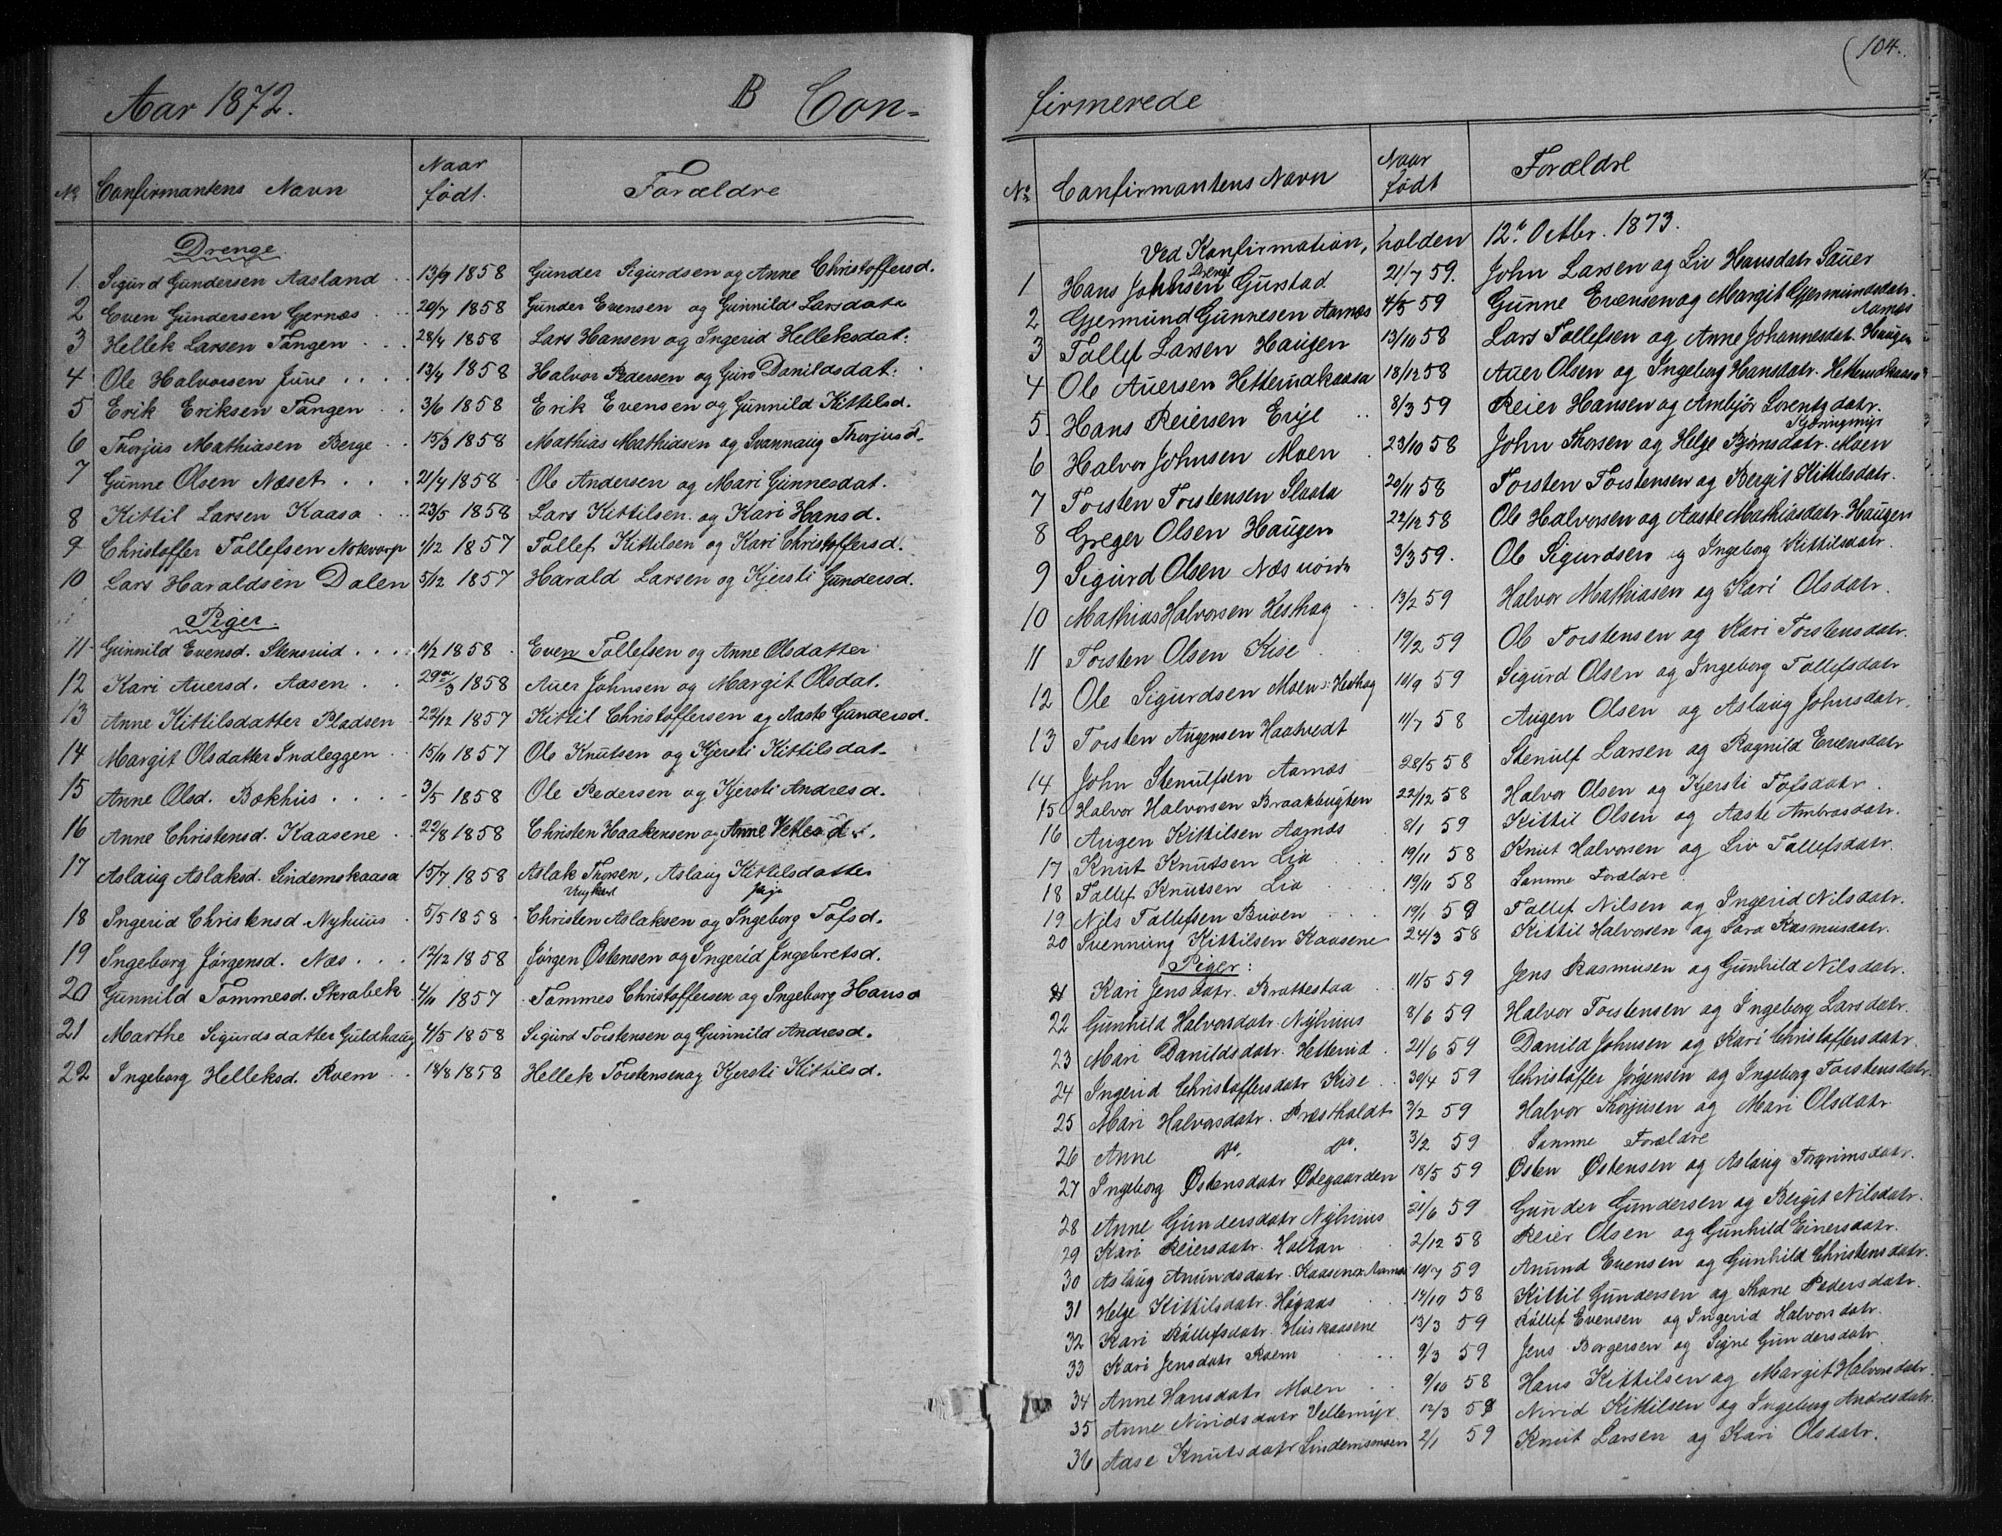 Aar 1872. B Con-
No Confirmantens Navn Naar født. Forældre
Drenge.
1. Sigurd Gundersen Aasland 13/9 1858 Gunder Sigurdsen og Anne Christoffersd.
2 Even Gundersen Gjernæs 20/7 1858 Gunder Evensen og Gunnild Larsdatr
3 Hellek Larsen Tangen 28/4 1858 Lars Hansen og Ingerid Helleksdat.
4 Ole Halvorsen Juve 13/4 1858 Halvor Pedersen og Guro Danildsdat.
5 Erik Eriksen Tangen 3/6 1858 Erik Evensen og Gunnild Kittilsd.
6 Thorjus Mathiasen Berge 15/3 1858 Mathias Mathiasen og Svannaug Thorjusd.
7 Gunne Olsen Næset 21/4 1858 Ole Andersen og Mari Gunnesdat.
8 Kittil Larsen Kaasa 23/5 1858 Lars Kittilsen og Kari Hansd.
9 Christoffer Tollefsen 1/12 1857 Tollef Kittilsen og Kari Christoffersd.
10 Lars Haraldsen Dalen 5/12 1857 Harald Larsen og Kjersti Gundersd.
Piger.
11 Gunnild Evensd. Stensrud 4/2 1858 Even Tollefsen og Anne Olsdatter
12 Kari Auersd. Aasen 29/3 1858 Auer Johnsen og Margit Olsdat.
13 Anne Kittilsdatter Pladsen 22/12 1857 Kittil Christoffersen og Aaste Gundersd.
14 Margit Olsdatter Indleggen 15/11 1857 Ole Knutsen og Kjersti Kittilsdat.
15 Anne Olsd. Bakhus 3/5 1858 Ole Pedersen og Kjersti Andresd.
16 Anne Christensd. Kaasene 22/8 1858 Christen Haakensen og Anne
17 Aslaug Aslaksd. Lindemskaasa 15/7 1858 Aslak Thorsen, Aslaug Kittilsdatter
Ungkarl Pige
18 Ingerid Christensd. Nyhuus 5/5 1858 Christen Aslaksen og Ingeborg Tofsd.
19 Ingeborg Jørgensd. Næs 12/12 1858 Jørgen Østensen og Ingerid Ingebretsd.
20 Gunnild Tommesd. Skrabek 4/11 1857 Tommes Christoffersen og Ingeborg Hansd
21 Marthe Sigurdsdatter Guldhaug 4/5 1858 Sigurd Torstensen og Gunnild Andresd.
22 Ingeborg Helleksd. Roem 18/8 1858 Hellek Torstensen og Kjersti Kittilsd.
firmerede (104.
No Confirmantens Navn Naar født Forældre
Ved Konfirmation, holden 12te Octbr. 1873.
Drenge
1 Hans Johnsen Gurstad 21/7 59. John Larsen og Liv Hansdatr Sauer
2 Gjermund Gunnesen Aarnæs 4/5 59 Gunne Evensen og Margit Gjermundsdatr. Aarnæs
3 Tollef Larsen Haugen 13/10 58 Lars Tollefsen og Anne Johannesdat. Haugen
4 Ole Auersen Hetterudkaasa 18/12 58 Auer Olsen og Ingeborg Hansdatr. Hetterudkaasa
5. Hans Reiersen Erije 8/3 59 Reier Hansen og Ambjør Lorentzdatr.
6 Halvor Johnsen Moen 23/10 58 John Thorsen og Helge Bjørnsdatr. Moen
7 Torsten Torstensen Slaata 20/11 58 Torsten Torstensen og Bergit Kittilsdatr.
8 Greger Olsen Haugen 22/12 58 Ole Halvorsen og Aaste Mathiasdatr. Haugen
9 Sigurd Olsen 3/3 59. Ole Sigurdsen og Ingeborg Kittilsdatr.
10 Mathias Halvorsen Heshag 13/2 59 Halvor Mathiasen og Kari Olsdatr.
11 Torsten Olsen Kise 19/2 59 Ole Torstensen og Kari Torstensdatr.
12 Ole Sigurdsen Moen i Heshag 14/9 59 Sigurd Olsen og Ingeborg Tollefsdatr
13 Torsten Augensen Haatvedt 11/7 58 Augen Olsen og Aslaug Johnsdatr.
14 John Stenulfsen Aarnæs 28/5 58 Stenulf Larsen og Ragnild Evensdatr
15 Halvor Halvorsen Braakbugten 22/12 58 Halvor Olsen og Kjersti Tofsdatr
16 Augen Kittilsen Aarnæs 8/1 59 Kittil Olsen og Aaste Ambrosdatr.
17 Knut Knutsen Lia 19/11 58 Knut Halvorsen og Liv Tollefsdatr.
18 Tollef Knutsen Lia 19/11 58 Samme Forældre.
19 Nils Tollefsen Buøen 19/1 59 Tollef Nilsen og Ingerid Nilsdatr.
20 Svennung Kittilsen Kaasene 24/3 58 Kittil Halvorsen og Sara Rasmusdatr.
Piger:
21 Kari Jensdatr. Brattestaa 11/5 59 Jens Rasmusen og Gunhild Nilsdatr.
22 Gunhild Halvorsdatr. Nyhuus 8/6 59 Halvor Torstensen og Ingeborg Larsdatr.
23 Mari Danildsdatr. Hetterud 21/6 59 Danild Johnsen og Kari Christoffersdatr.
24 Ingerid Christoffersdatr Kise 30/4 59 Christoffer Jørgensen og Ingeborg Torstensdatr.
25 Mari Halvorsdatr. Præstholdt 3/2 59 Halvor Thorjusen og Mari Olsdatr
26 Anne do. do. 3/2 59 Samme Forældre
27 Ingeborg Østensdatr Ødegaarden 18/5 59 Østen Østensen og Aslaug Torgrimsdatr.
28 Anne Gundersdatr Nyhuus 21/6 59 Gunder Gundersen og Bergit Nilsdatr.
29 Kari Reiersdatr. Holtan 2/12 58 Reier Olsen og Gunhild Einersdatr.
30 Aslaug Anundsdatr. Kaasene Aarnæs 19/7 59 Anund Evensen og Gunhild Christensdatr.
31 Helge Kittilsdatr. Høgaas 14/10 58 Kittil Gundersen og Thone Pedersdatr.
32 Kari Rollefsdatr. Huskaasene 13/3 59 Rollef Evensen og Ingerid Halvorsdatr.
33 Kari Jensdatr Roem 9/3 59 Jens Borgersen og Signe Gundersdatr.
34 Anne Hansdatr Moen 9/10 58 Hans Kittilsen og Margit Halvorsdatr
35 Anne Niridsdatr Vellemyr 12/3 58 Nirid Kittilsen og Ingeborg Andresdatr.
36 Aase Knutsdatr Lindemsmoen 2/1 59 Knut Larsen og Kari Olsdatr.